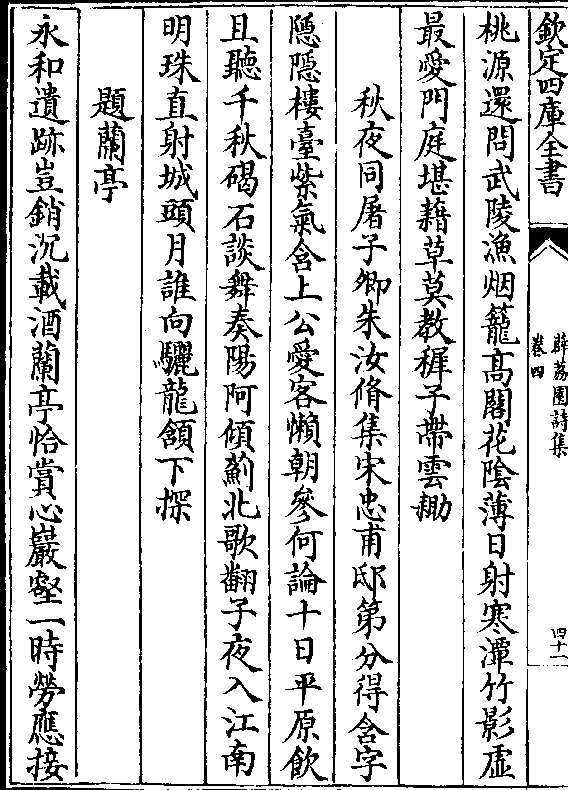 欽定四庫全書
薜荔園詩集
卷四
四十一
桃源還問武陵漁烟籠高閣花陰薄日射寒潭竹影虛
最愛門庭堪藉草莫教穉子帶雲鋤
秋夜同屠子卿朱汝脩集宋忠甫邸第分得含字
隱隱樓臺紫氣含上公愛客懶朝參何論十日平原飲
且聽千秋碣石談舞奏陽阿傾薊北歌翻子夜入江南
明珠直射城頭月誰向驪龍頷下探
題蘭亭
永和遺跡豈銷沉載酒蘭亭恰賞心巖壑一時勞應接